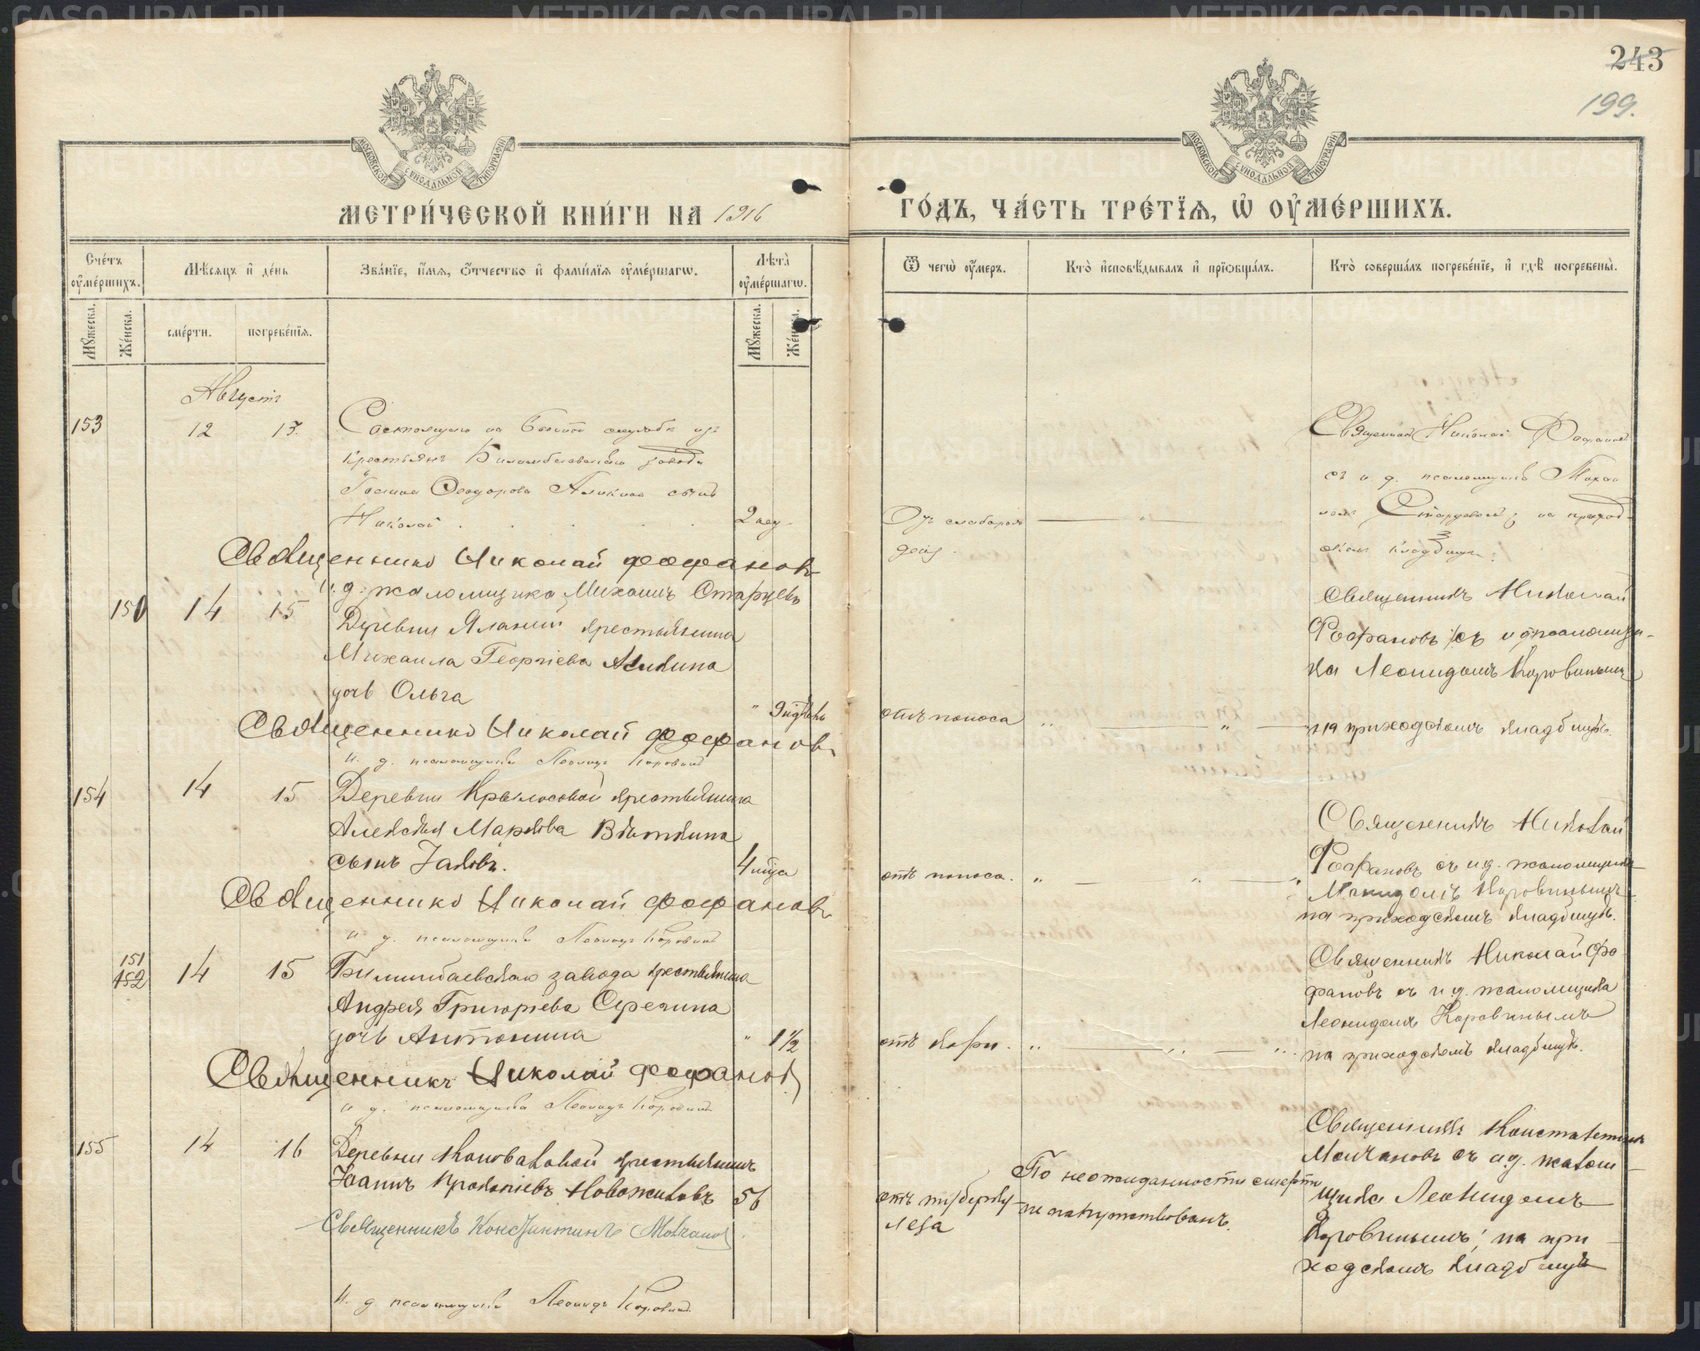 243
199.
МЕТРИ́ЧЕСКОЙ КНИ́ГИ НА 1916
ГО́ДЪ, ЧА́СТЬ ТРЕ́ТІЯ, Ѡ҆ ОУ҆МЕ́РШИХЪ.
Сче́тъ оу҆ме́ршихъ.
Мѣ́сяцъ и҆ де́нь
Зва́нїе, и҆́мя, ѻ҆́тчество и҆ фами́лїя оу҆ме́ршагѡ.
Лѣ́та оу҆ме́ршагѡ.
Ѿ чегѡ̀ оу҆́меръ.
Кто̀ и҆сповѣ́дывалъ и҆ прїѡбща́лъ.
Кто̀ соверша́лъ погребе́нїе, и҆ гдѣ̀ погребены̀.
Мꙋ́жеска.
Же́нска.
сме́рти.
погребе́нїя.
Мꙋ́жеска.
Же́нска.
Августъ
153
12
13.
Состоящаго на военной службе изъ
крестьянъ Билимбаевскаго завода
Ѳеодорова сынъ
Николай
2 нед.
Отъ слабаго
Священникъ Николай Фофановъ
съ и. д. псаломщика Михаи
ломъ Старцевымъ; на приход
скомъ кладбище.
Священникъ Николай Фофановъ
и. д. псаломщика Михаилъ Старцевъ
150
14
15
Деревни крестьянина
Михаила Георгіева Аликина
дочь Ольга
"
отъ поноса
"
"
Священникъ Николай
Фофановъ съ и д псаломщи-
ка Леонидомъ Коровинымъ
на приходскомъ кладбищѣ.
Священникъ Николай Фофановъ
и. д. псаломщика Леонидъ Коровинъ
154
14
15
Деревни Крылосовой крестьянина
Алексѣя Маркова Вяткина
сынъ Іаковъ.
4 мѣса
отъ поноса.
"
"
"
Священникъ Николай
Фофановъ съ и д. псаломщика
Леонидомъ Коровинымъ
на приходскомъ кладбищѣ.
Священникъ Николай Фофановъ
и. д. псаломщика Леонидъ Коровинъ
151
152
14
15
Билимбаевскаго завода крестьянина
Андрея Григорьева
дочь Антонина
"
1 ½
отъ кори.
"
"
"
Священникъ Николай Фо
фановъ съ и д. псаломщика
Леонидомъ Коровинымъ
на приходскомъ кладбищѣ.
Священникъ Николай Фофановъ
и. д. псаломщика Леонидъ Коровинъ
155
14
16
Деревни Коноваловой крестьянинъ
Іоаннъ Прокопіевъ Новожиловъ
56
отъ туберку
леза
По неожиданности смерти
не напутствованъ.
Священникъ Константинъ
Молчановъ съ и.д. псалом
щика Леонидомъ
Коровинымъ, на при
ходскомъ кладбищѣ
Священникъ Константинъ Молчановъ.
и. д псаломщика Леонидъ Коровинъ